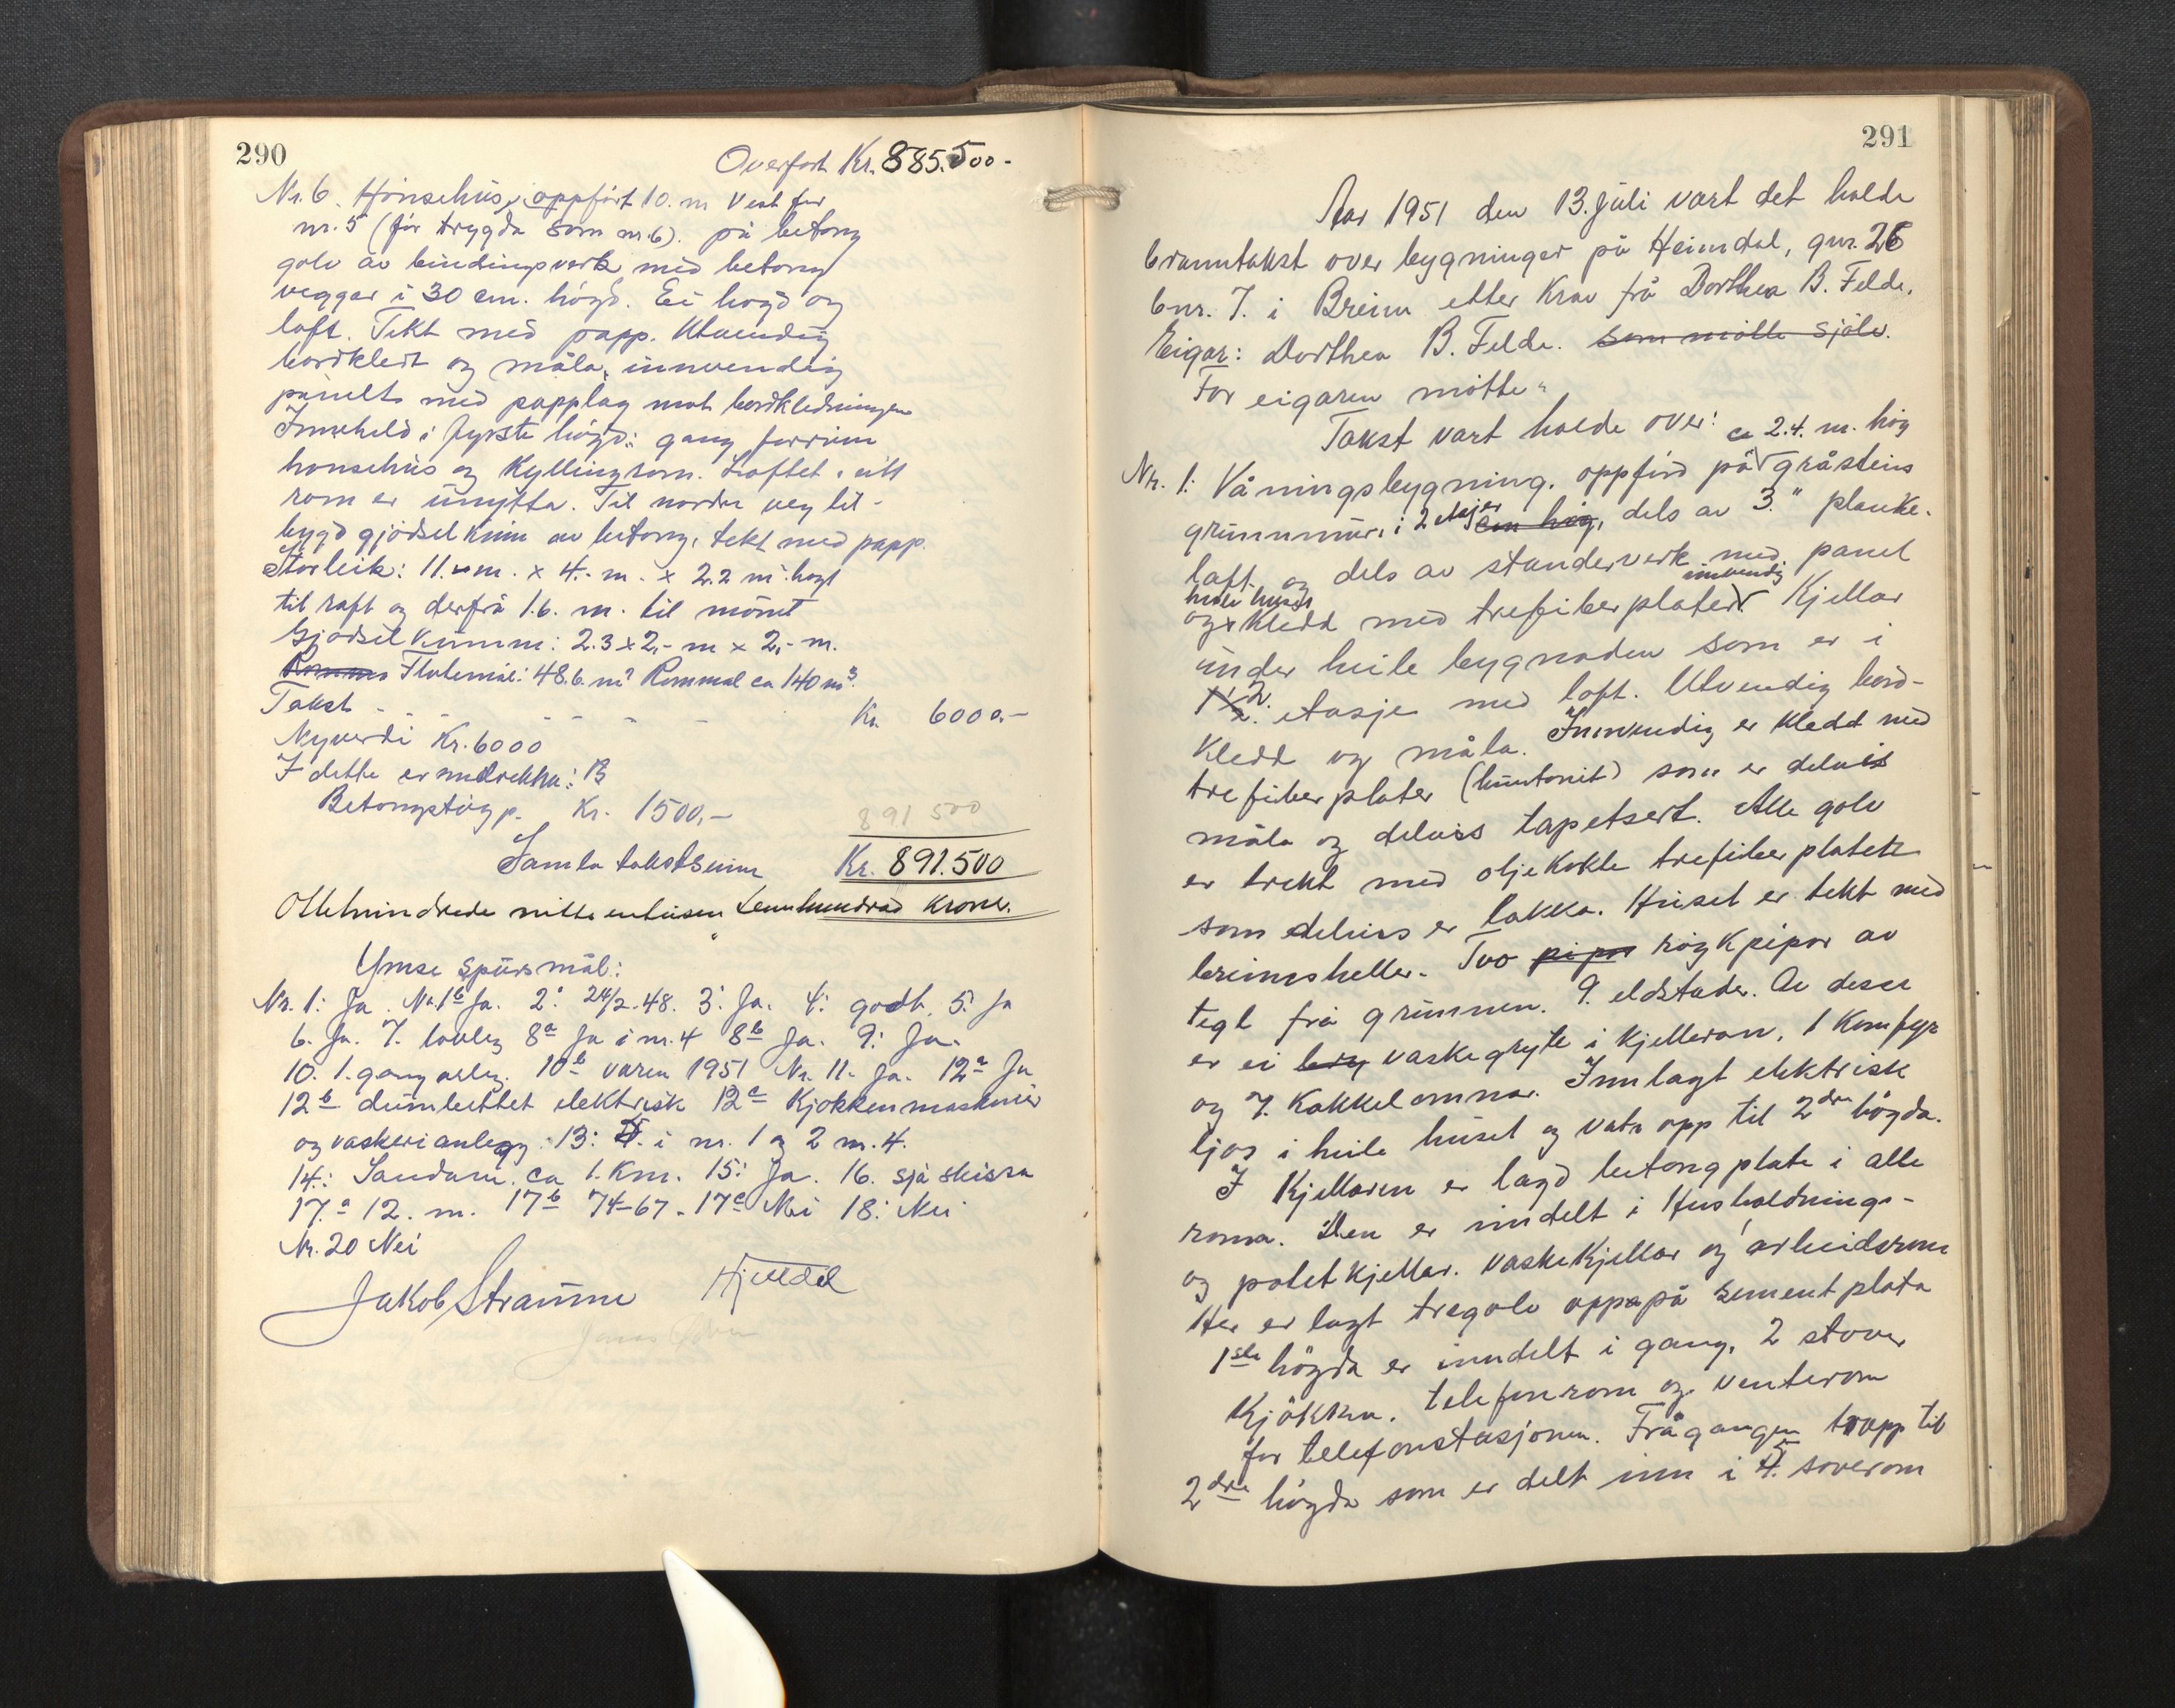 290
Overført Kr. 885.500-
Nr. 6. Hönsehus, oppfört 10. m vest for
nr. 5 (för trygda som nr. 6). på betong
golv av bindingsverk med betong
vegger i 30 cm. högd. Ei högd og
loft. Tekt med papp. Utvendig
bordkledt og måla, innvendig
panelt med papplag mot bordkledningen
Inneheld i fyrste högd: gang forrum
honsehus og Kyllingrom. Loftet, eitt
rom er unytta. Til nordre veg til-
bygd gjödselkum av betong, tekt med papp.
Storleik: 11.- m. x 4.- m. x 2.2 m. högt
til raft og derfrå 1.6. m. til mönet
Gjödselkumm: 2.3 x 2,- m x 2,- m.
Flatemål: 48.6. m² Rommål ca 140 m³.
Takst - - - - - - Kr. 6000.-
Nyverdi Kr. 6000
I dette er medrekna: B
Betongstöyp. Kr. 1500,-
891 500
Samla takstsum Kr. 891.500
Ottehundrede nittientusen femhundrad kroner.
Ymse spursmål:
Nr. 1: Ja. Nr. 1b Ja. 2: 24/2-48. 3: Ja. 4: godt. 5: Ja
6. Ja. 7. lovleg 8a Ja i nr. 4 8b Ja. 9: Ja.
10. 1. gang årleg. 10b våren 1951 Nr. 11. Ja. 12a Ja
12b elektrisk 12c Kjøkkenmaskiner
og vaskerianlegg. 13: i nr. 1 og 2 nr. 4.
14: Sandane. ca 1. Km. 15: Ja. 16. sjå skissa
17.a 12. m. 17b 74-67. 17c Nei 18: Nei
Nr. 20 Nei
Jakob Straume Hjelldal
291
Aar 1951 den 13. juli vart det halde
branntakst over bygningar på Heimdal, gnr. 26
bnr. 7. i Breim etter Krav frå Dorthea B. Felde.
Eigar: Dorthea B. Felde. som mötte sjölv.
For eigaren mötte "
Takst vart halde over: ca 2.4. m. hög
Nr. 1: Våningsbygning, oppförd på gråsteins
grunnmur, i 2 etasjer em hög, dels av 3." planke-
laft og dels av standerverk med panel
heile huset innvendig
og kledd med trefiberplater. Kjellar
under heile bygnaden som er i
1½ 2. etasje med loft. Utvendig bord-
kledd og måla. Innvendig er kledd med
trefiberplater (huntonit) som er delvis
måla og delvis tapetsert. Alle golv
er trekt med oljekokte trefiberplater
som delvis er lakka. Huset er tekt med
breimsheller. Two pipor röykpipor av
tegl frå grunnen. 9. eldstader. Av desse
er ei bryg vaskegryte i kjellaren, 1 Komfyr
og 7. Kakkelomnar. Innlagt elektrisk
ljos i heile huset og vatn opp til 2dre högda.
I Kjellaren er lagd betongplate i alle
roma. Den er inndelt i Husholdnings-
og potetkjellar. Vaskekjellar og arbeidsrom
Her er lagt tregolv oppapå sementplata
1ste högda er inndelt i gang, 2 stover
Kjökken, telefonrom og venterom
for telefonstasjonen. Frå gangen trapp til
2dre högda som er delt inn i 5 soverom